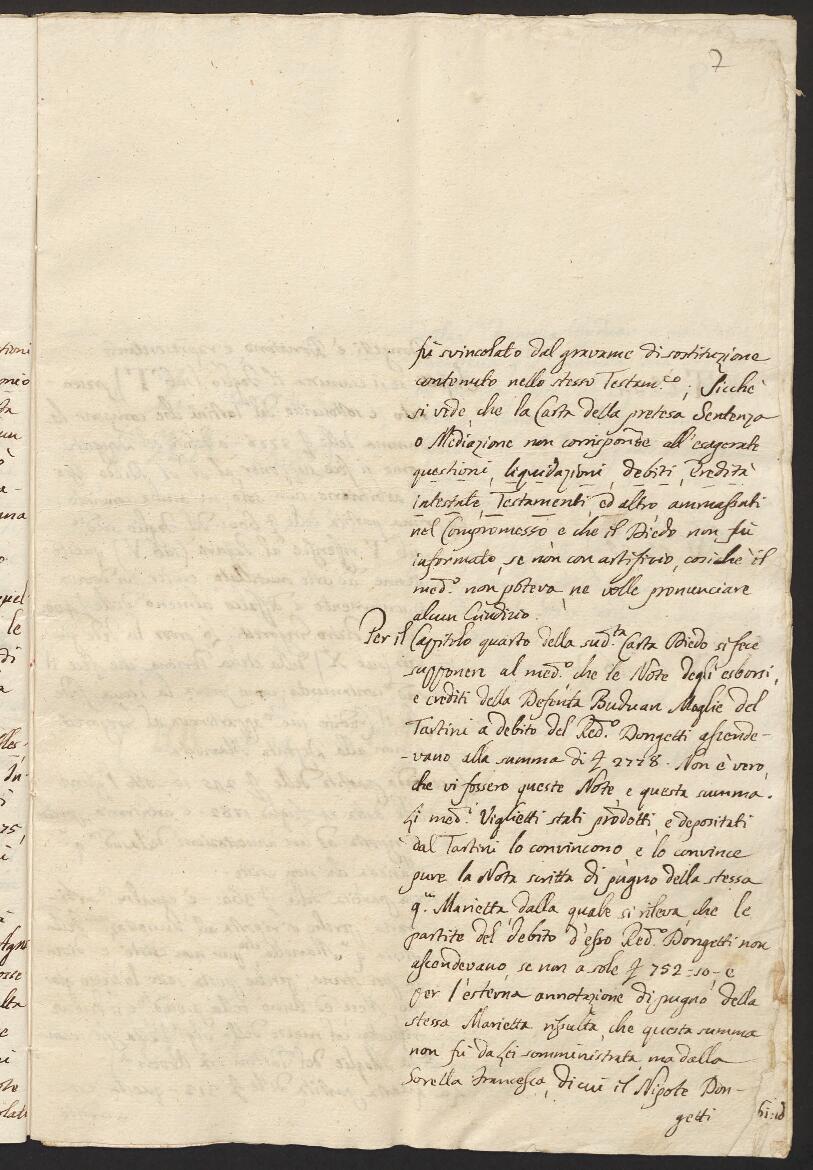 7
fù svincolato dal gravame di sostituzione
contenuto nello stesso Testam.to; Sicchè
si vede, che la Carta della pretesa Sentenza
o Mediazione non corrisponde all'esagerate
questioni, liquidazioni, debiti, Eredità
intestate, Testamenti, ed altro ammassati
nel Compromesso e che il Diedo non fù
informato, se non con artifizio, cosichè il
med.o non poteva, ne volle pronunciare
alcun Giudizio.
Per il Capitolo quarto della sud.ta Carta Diedo si fece
supponere al med.o che le Note degli esborsi,
e crediti della Defonta Buduan Moglie del
Tartini a debito del Red.o Dongetti ascende-
-vano alla summa di £ 2778. Non è vero,
che vi fossero queste Note e questa summa.
Li med.i Viglietti stati prodotti, e depositati
dal Tartini lo convincono, e lo convince
pure la Nota scritta di pugno della stessa
q.m Marietta, dalla quale si rileva, che le
partite del debito d'esso Red.o Dongetti non
ascendevano, se non a sole £ 752=10= e
per l'esterna annotazione di pugno della
stessa Marietta risulta, che questa summa
non fù da Lei somministrata, ma dalla
Sorella Francesca, di cui il Nipote Don-
getti